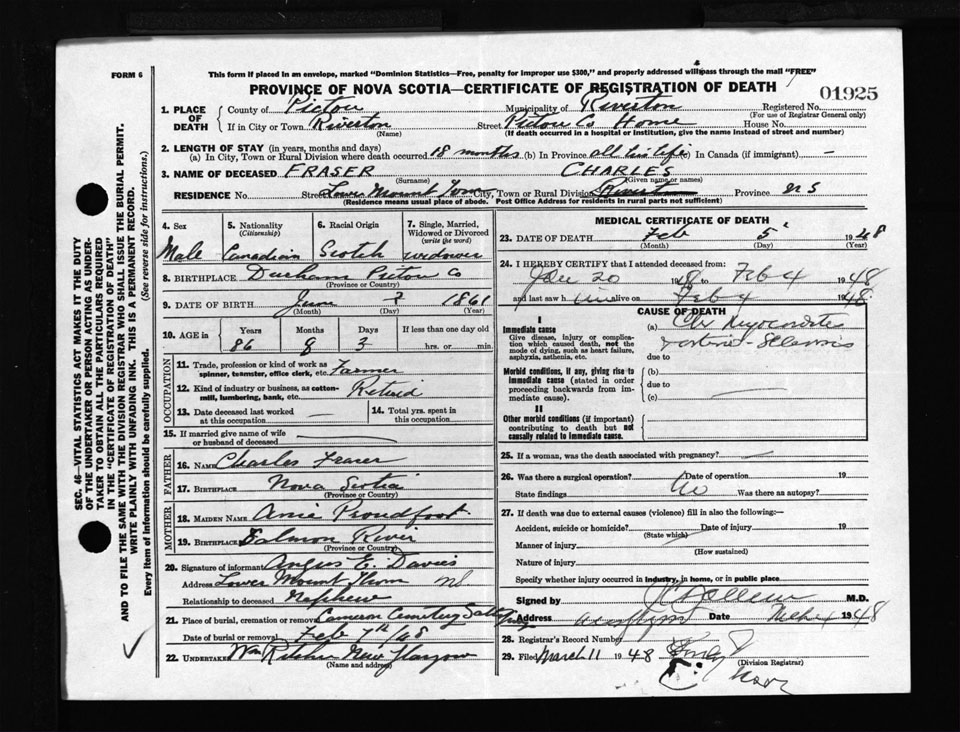 FORM 6
This form if placed in an envelope, marked "Dominion Statistics—Free, penalty for improper use $300," and properly addressed will pass through the mail "FREE"
PROVINCE OF NOVA SCOTIA—CERTIFICATE OF REGISTRATION OF DEATH
01925
1. PLACE OF DEATH County of Pictou Municipality of Riverton Registered No.
(For use of Registrar General only)
If in City or Town Riverton Street Pictou Co Home House No.
(Name) (If death occurred in a hospital or institution, give the name instead of street and number)
2. LENGTH OF STAY (in years, months and days)
(a) In City, Town or Rural Division where death occurred 18 months (b) In Province all his life (c) In Canada (if immigrant) —
3. NAME OF DECEASED FRASER CHARLES
(Surname) (Given name or names)
RESIDENCE No. Street Lower Mount Thom City, Town or Rural Division Province N S
(Residence means usual place of abode. Post Office Address for residents in rural parts not sufficient)
4. Sex Male
5. Nationality (Citizenship) Canadian
6. Racial Origin Scotch
7. Single, Married, Widowed or Divorced (write the word) widower
8. BIRTHPLACE Durham Pictou Co
(Province or Country)
9. DATE OF BIRTH June 2 1861
(Month) (Day) (Year)
10. AGE in Years Months Days If less than one day old
86 8 3 hrs. or min.
OCCUPATION
11. Trade, profession or kind of work as spinner, teamster, office clerk, etc. Farmer
12. Kind of industry or business, as cotton-mill, lumbering, bank, etc. Retired
13. Date deceased last worked at this occupation —
14. Total yrs. spent in this occupation
15. If married give name of wife or husband of deceased —
FATHER
16. NAME Charles Fraser
17. BIRTHPLACE Nova Scotia
(Province or Country)
MOTHER
18. MAIDEN NAME Annie Proudfoot
19. BIRTHPLACE Salmon River
(Province or Country)
20. Signature of informant Angus E. Davies
Address Lower Mount Thom NS
Relationship to deceased Nephew
21. Place of burial, cremation or removal Cameron Cemetery Salt Spring
Date of burial or removal Feb 7th/48
22. UNDERTAKER Wm Ritchie New Glasgow
(Name and address)
MEDICAL CERTIFICATE OF DEATH
23. DATE OF DEATH Feb 5 1948
(Month) (Day) (Year)
24. I HEREBY CERTIFY that I attended deceased from:
20 1948 to Feb 4 1948
and last saw him alive on Feb 4 1948
CAUSE OF DEATH
I
Immediate cause
Give disease, injury or complication which caused death, not the mode of dying, such as heart failure, asphyxia, asthenia, etc.
(a) Chr Myocarditis
due to
Morbid conditions, if any, giving rise to immediate cause (stated in order proceeding backwards from immediate cause).
(b)
due to
(c)
II
Other morbid conditions (if important) contributing to death but not causally related to immediate cause.
25. If a woman, was the death associated with pregnancy? —
26. Was there a surgical operation? Date of operation 19
State findings No Was there an autopsy?
27. If death was due to external causes (violence) fill in also the following:—
Accident, suicide or homicide? Date of injury 19
(State which)
Manner of injury
(How sustained)
Nature of injury
Specify whether injury occurred in industry, in home, or in public place
Signed by M.D.
Address Date 1948
28. Registrar's Record Number
29. Filed March 11 1948
(Division Registrar)
SEC. 46—VITAL STATISTICS ACT MAKES IT THE DUTY OF THE UNDERTAKER OR PERSON ACTING AS UNDERTAKER TO OBTAIN ALL THE PARTICULARS REQUIRED IN THE "CERTIFICATE OF REGISTRATION OF DEATH" AND TO FILE THE SAME WITH THE DIVISION REGISTRAR WHO SHALL ISSUE THE BURIAL PERMIT.
WRITE PLAINLY WITH UNFADING INK. THIS IS A PERMANENT RECORD.
Every item of Information should be carefully supplied. (See reverse side for instructions.)